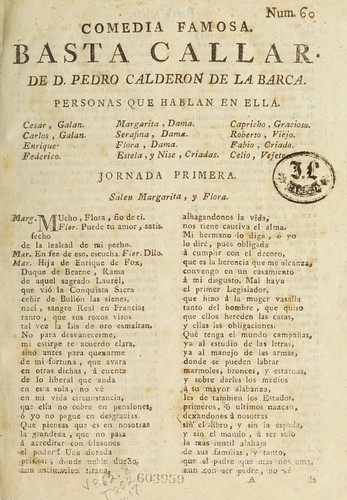 Num. 60
COMEDIA FAMOSA.
BASTA CALLAR.
DE D. PEDRO CALDERON DE LA BARCA.
PERSONAS QUE HABLAN EN ELLA.
Cesar, Galan.
Carlos, Galan.
Enrique.
Federico.
Margarita, Dama.
Serafina, Dama.
Flora, Dama.
Estela, y Nise, Criadas.
Capricho, Gracioso.
Roberto, Viejo.
Fabio, Criado.
Celio, Vejete.
JORNADA PRIMERA.
Salen Margarita, y Flora.
Marg. MUcho, Flora, fio de ti.
Flor. Puede tu amor, satis-
fecho
de la lealtad de mi pecho.
Mar. En fee de eso, escucha Flor. Dilo.
Mar. Hija de Enrique de Fox,
Duque de Bearne, Rama
de aquel sagrado Laurél,
que vió la Conquista Sacra
ceñir de Bullón las sienes,
nací, sangre Real en Francia;
tanto, que sus roxos visos
tal vez la Lis de oro esmaltan.
No para desvanecerme,
mi estirpe te acuerdo clara,
sino antes para quexarme
de mi fortuna, que avara
en otras dichas, á cuenta
de lo liberal que anda
en esta sola, no vé
en mi vida circunstancia,
que ella no cobre en pensiones,
ó yo no pague en desgracias.
Que piensas que es en nosotras
la grandeza, que no para
á acreditar con blasones
el poder? Una dorada
prision, donde noble dueño,
con estimacion tirana,
alhagandonos la vida,
nos tiene cautiva el alma.
Mi hermano lo diga, ó yo
lo diré, pues obligada
á cumplir con el decoro,
que es la herencia que me alcanza,
convengo en un casamiento
á mi disgusto. Mal haya
el primer Legislador,
que hizo á la muger vasalla
tanto del hombre, que quiso
que ellos hereden las cosas,
y ellas las obligaciones.
Qué tenga el mundo campañas,
ya al estudio de las letras,
ya al manejo de las armas,
donde se pueden labrar
marmoles, bronces, y estatuas,
y sobre darlos los medios
á su mayor alabanza,
les de tambien los Estados.
primeros, ó ultimos nazcan,
dexandonos á nosotras
sin el libro, y sin la espada,
y sin el mundo, á ser solo
la mas inutil alahaja
de sus familias, y tanto,
que al padre que mas nos ama,
A
603959